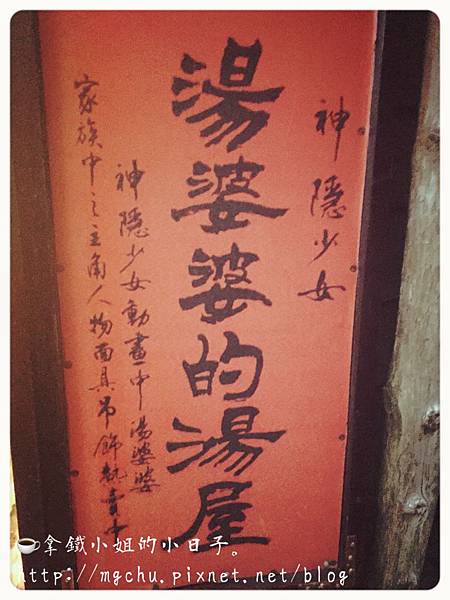 神隱少女
湯婆婆的湯屋
神隱少女動畫中湯婆婆
家族中之主角人物面具吊飾熱賣
拿鐵小姐的小日子。
http://mgchu.pixnet.net/blog